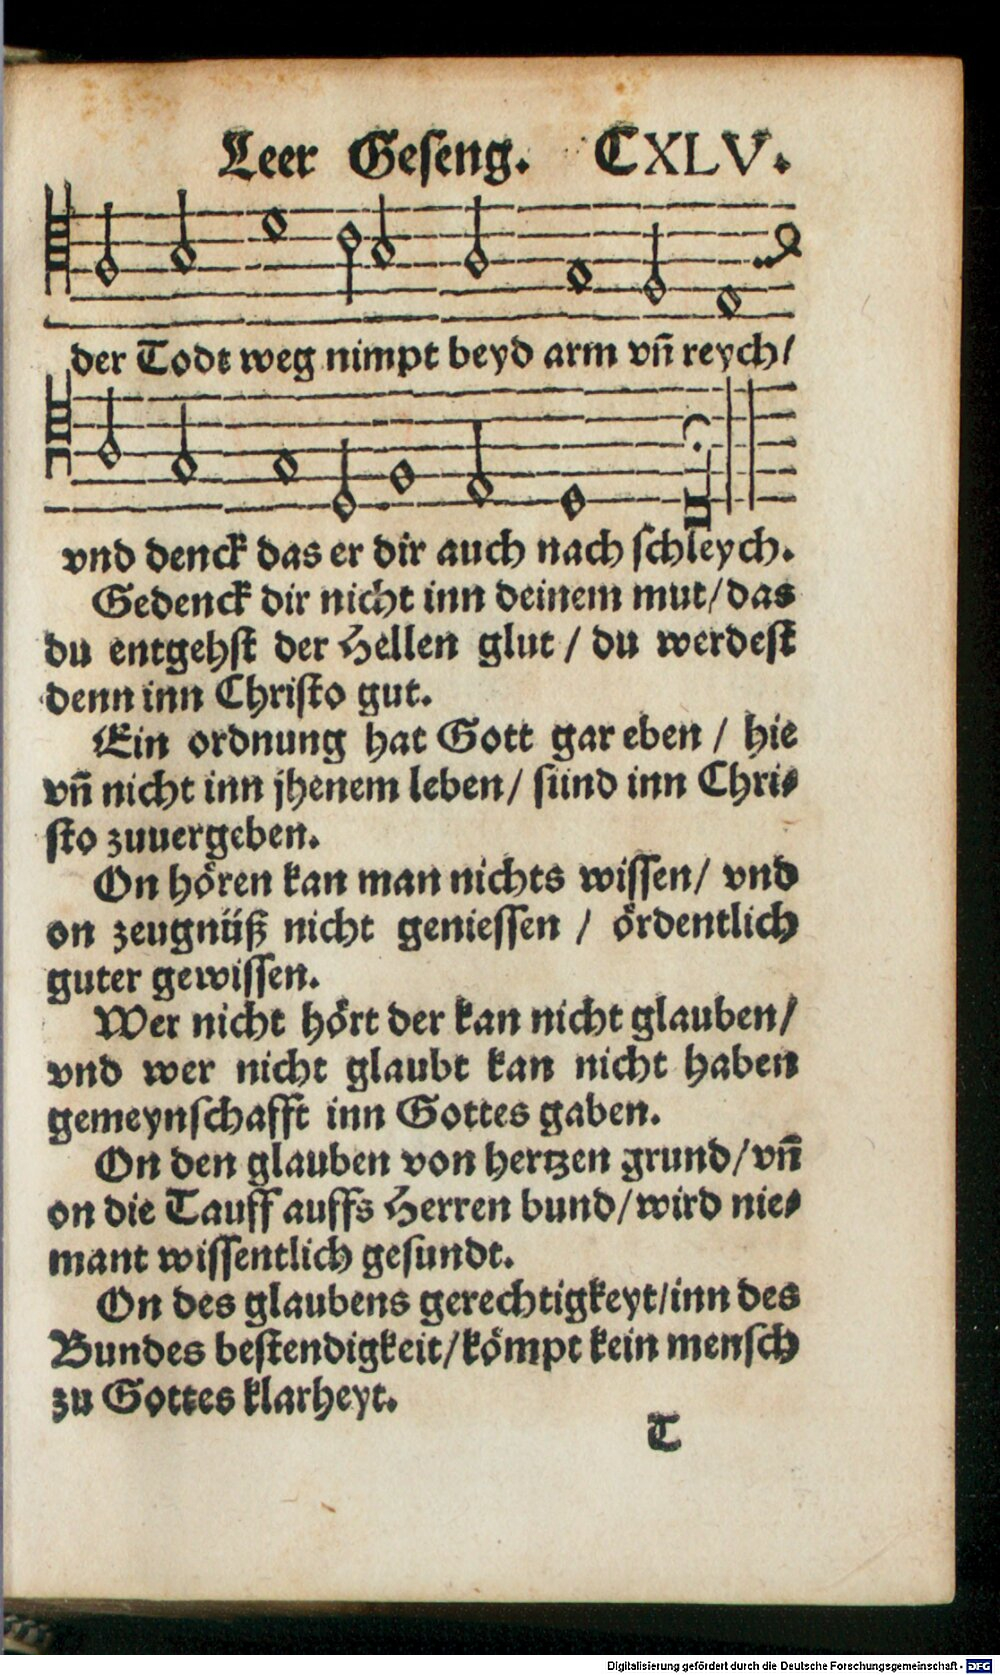 Leer Geseng. CXLV.
der Todt weg nimpt beyd arm vñ reych/
vnd denck das er dir auch nach schleych.
Gedenck dir nicht inn deinem mut/das
du entgehst der Hellen glut / du werdest
denn inn Christo gut.
Ein ordnung hat Gott gar eben / hie
vñ nicht inn jhenem leben/ sünd inn Chri-
sto zuuergeben.
On hören kan man nichts wissen/ vnd
on zeugnüß nicht geniessen / ördentlich
guter gewissen.
Wer nicht hört der kan nicht glauben/
vnd wer nicht glaubt kan nicht haben
gemeynschafft inn Gottes gaben.
On den glauben von hertzen grund/vñ
on die Tauff auffs Herren bund/wird nie-
mant wissentlich gesundt.
On des glaubens gerechtigkeyt/inn des
Bundes bestendigkeit/kömpt kein mensch
zu Gottes klarheyt.
T
Digitalisierung gefördert durch die Deutsche Forschungsgemeinschaft - DFG